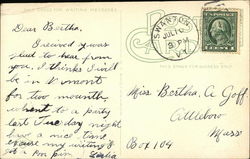 THIS SPACE FOR WRITING MESSAGES
Dear Bertha.
I recived your
was
glad to hear from
you. I thinks I will
be in V mont
for two mounth
whent to a party
last Tuesday night
had a nice time
excuse my writing
a pin
SWANTON
JUL
THIS SPACE FOR ADDRESS ONLY
Miss Bertha. A. Goff
Attleboro
Mass
Box 104